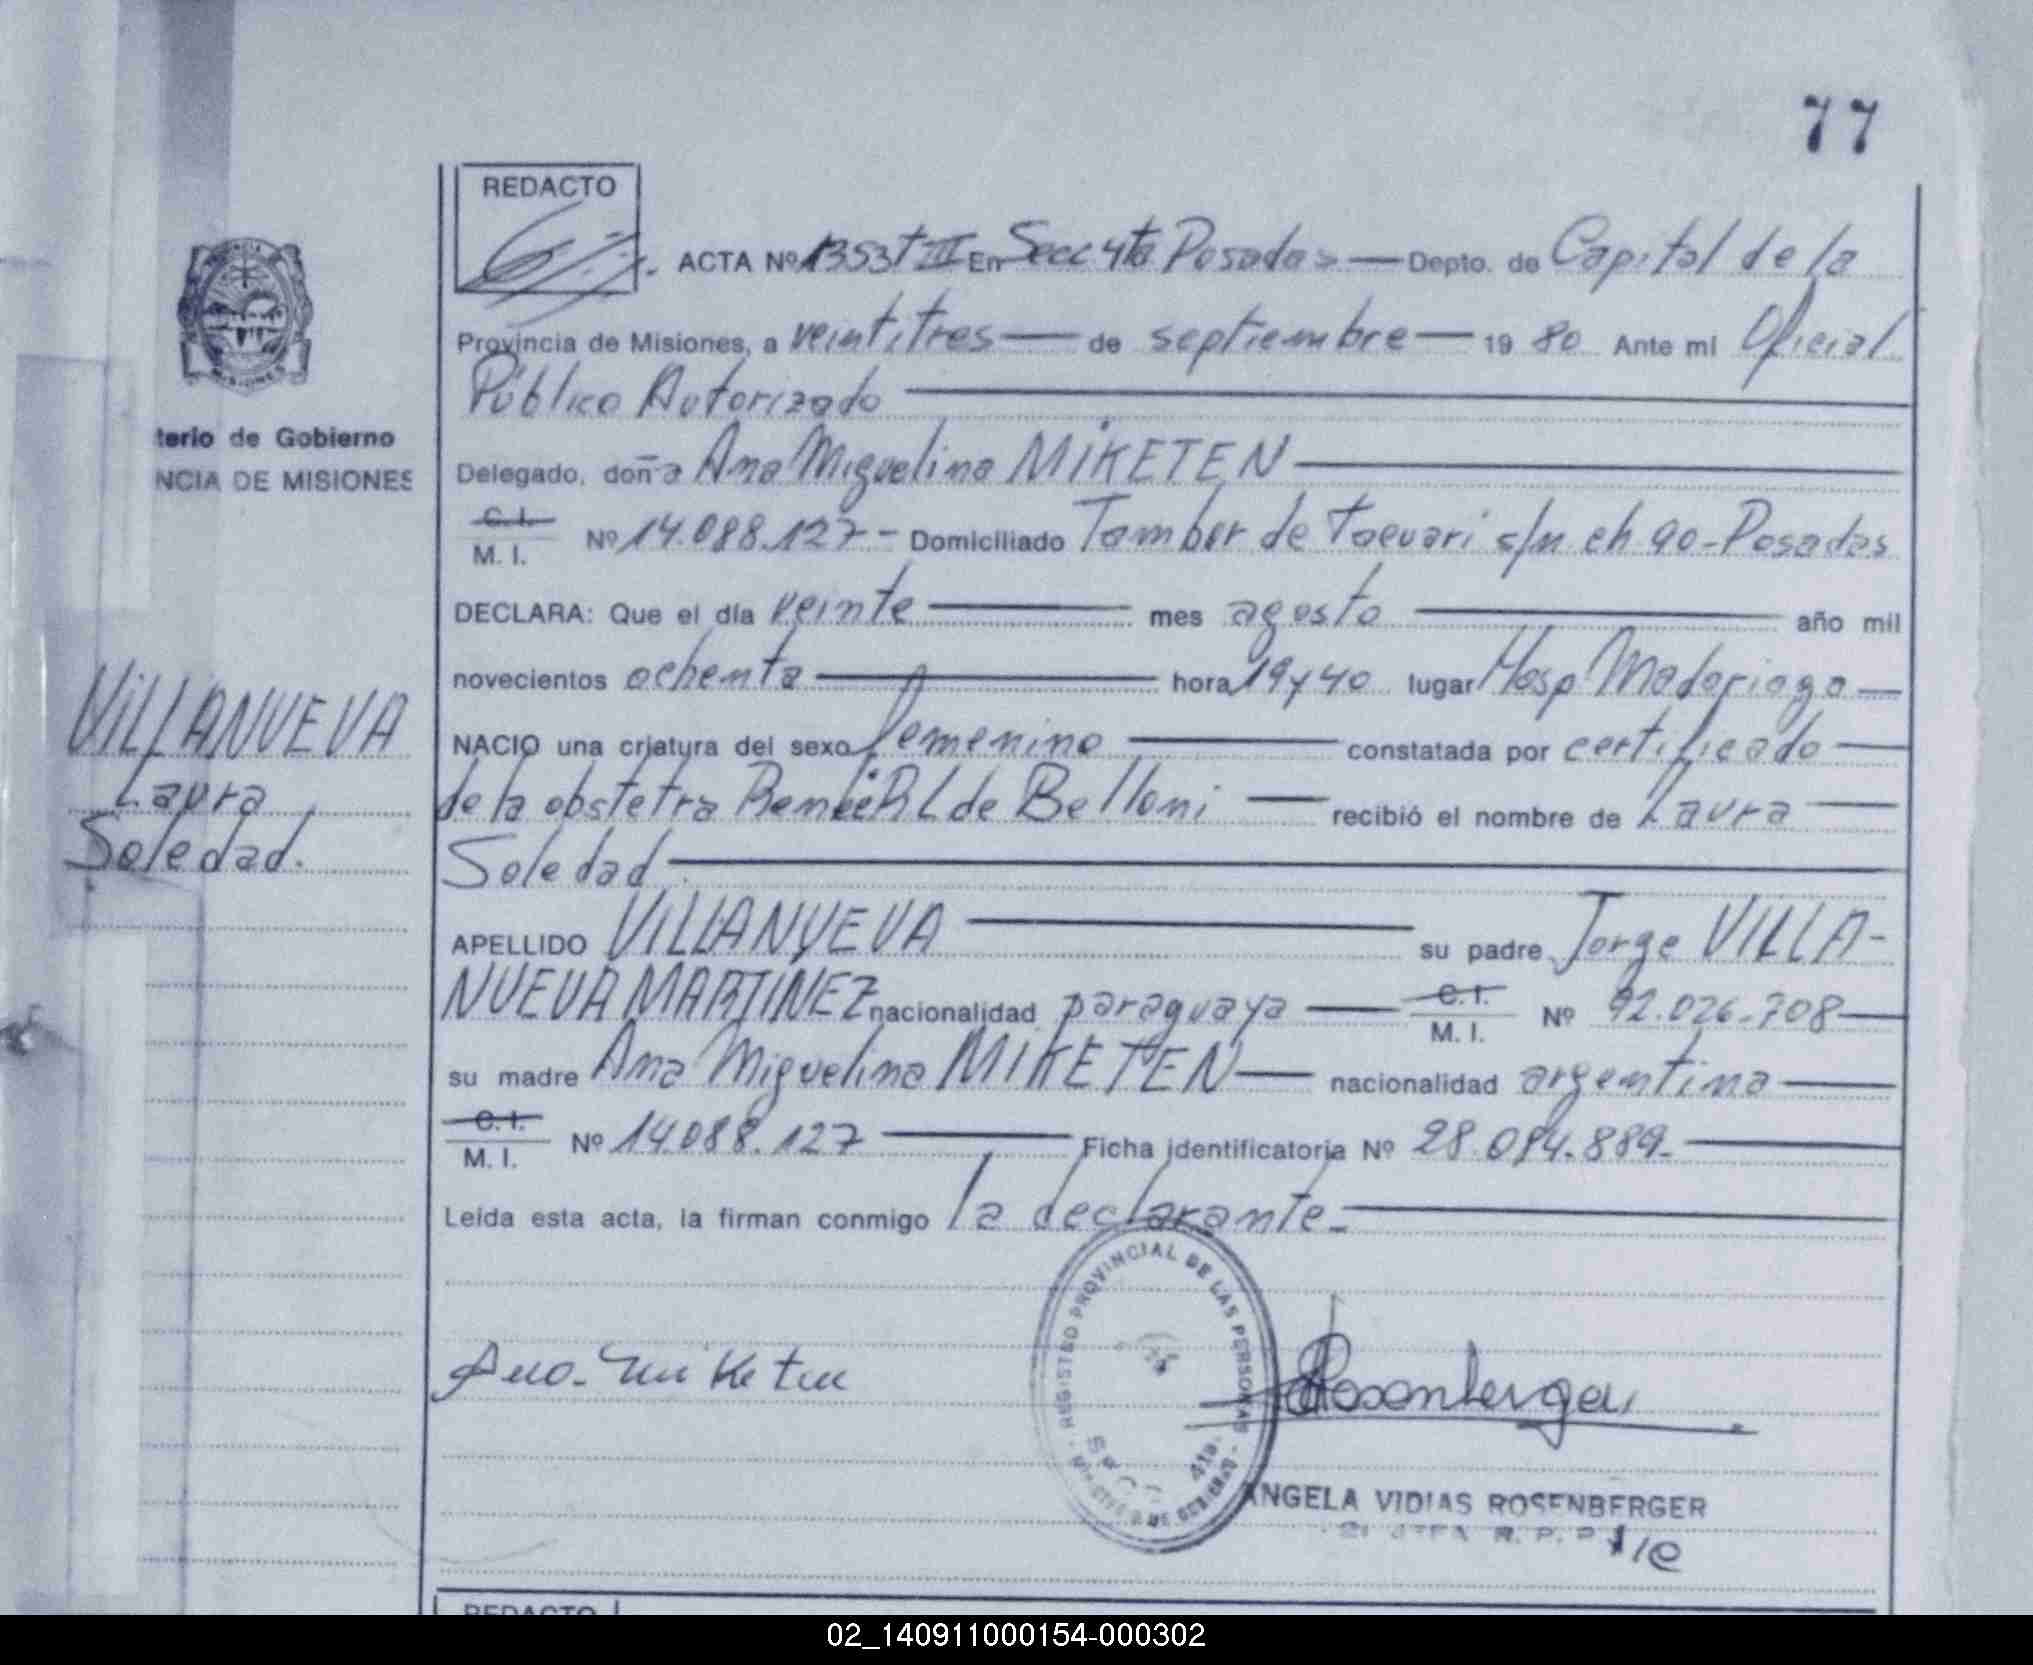 77
REDACTO
ACTA Nº 1353 t III En Secc 4ta Posadas — Depto. de Capital de la
Provincia de Misiones, a veintitres — de septiembre — 19 80 Ante mi Oficial
Público Autorizado
terio de Gobierno
NCIA DE MISIONES
Delegado, doña Ana Miguelina MIKETEN
C.I. M. I. Nº 14.088.127 - Domiciliado Tambor de Tacuari s/n ch 90 - Posadas
DECLARA: Que el día veinte — mes agosto — año mil
novecientos ochenta — hora 19 y 40 lugar Hosp Madariaga —
VILLANUEVA
Laura
Soledad.
NACIO una criatura del sexo femenino — constatada por certificado —
de la obstetra R L de Belloni — recibió el nombre de Laura —
Soledad
APELLIDO VILLANUEVA — su padre Jorge VILLA-
NUEVA MARTINEZ nacionalidad paraguaya — C.I. M. I. Nº 92.026.708 —
su madre Ana Miguelina MIKETEN — nacionalidad argentina —
C.I. M. I. Nº 14.088.127 — Ficha identificatoria Nº 28.084.889. —
Leída esta acta, la firman conmigo la declarante. —
REGISTRO PROVINCIAL DE LAS PERSONAS
4ta.
Ana Miketen
Rosenberger
ANGELA VIDIAS ROSENBERGER
R. P. P.
REDACTO
02_140911000154-000302